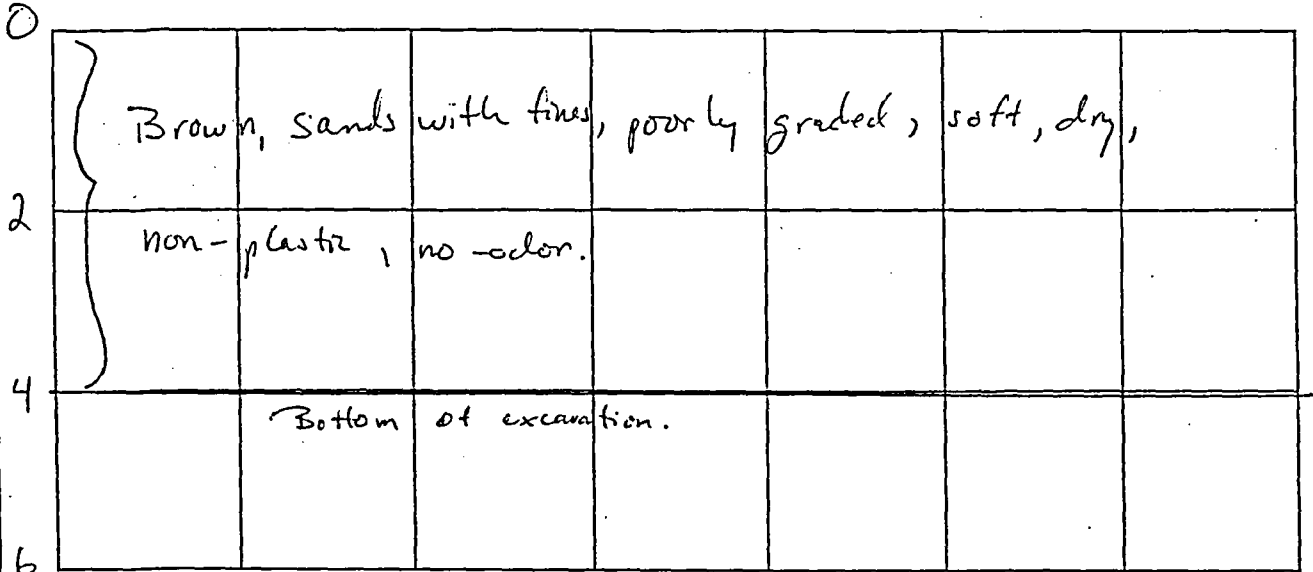 0
Brown, sands with fines, poorly graded, soft, dry,
2
non-plastic, no-odor.
4
Bottom of excavation.
6